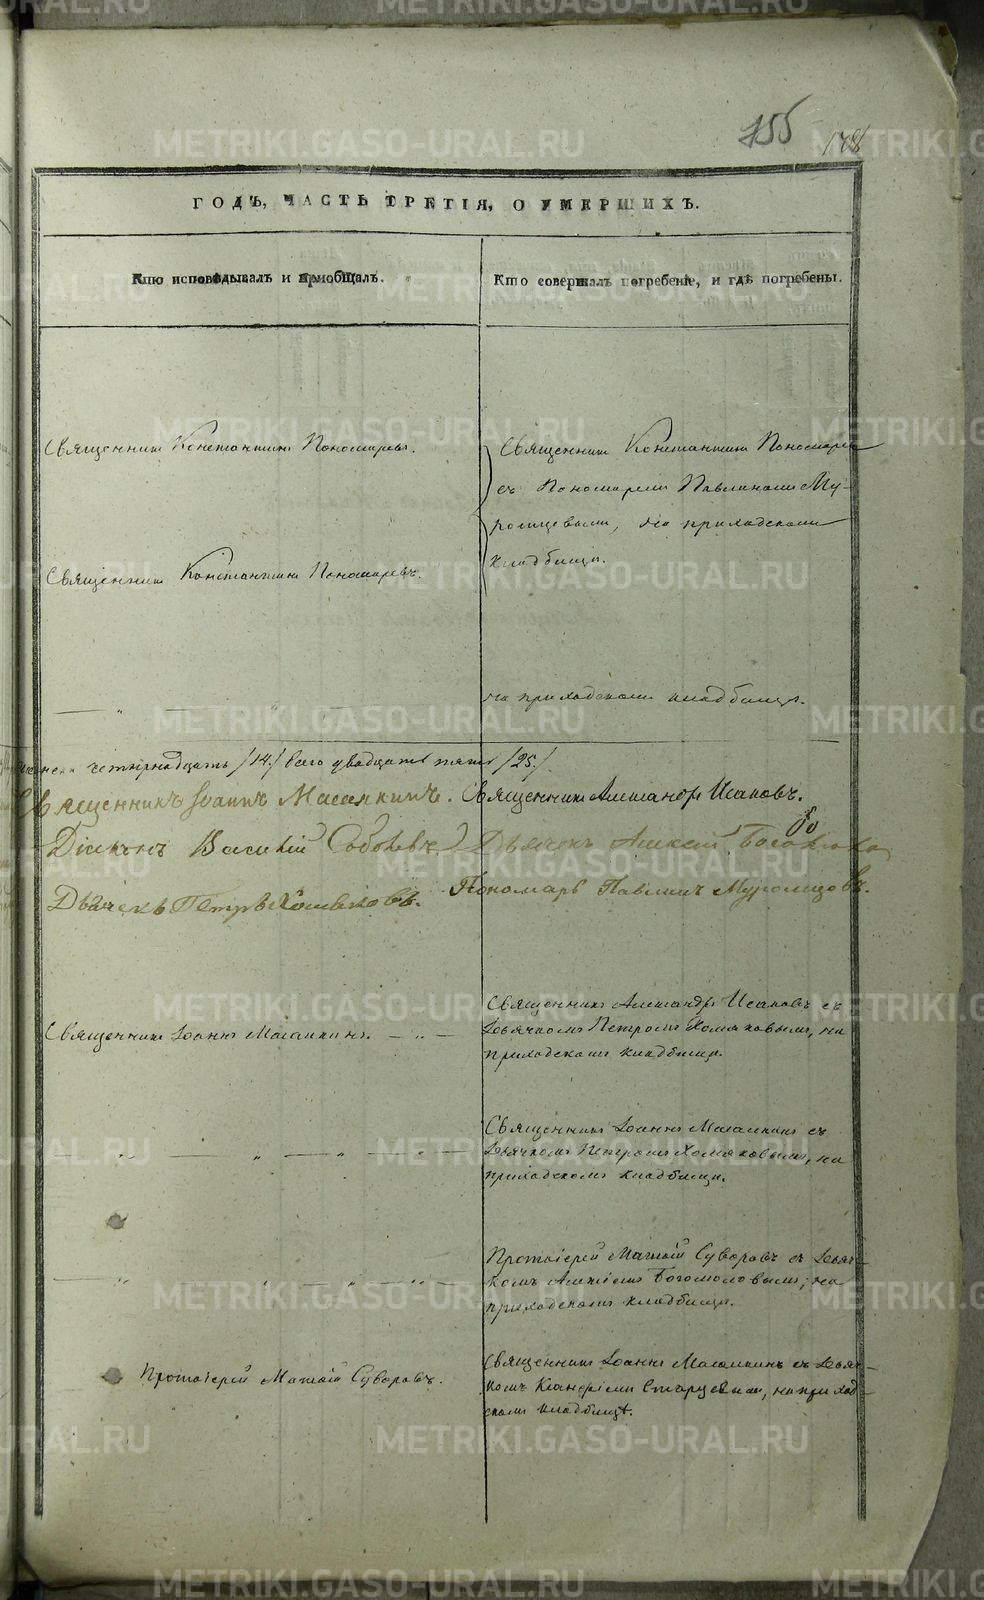 155
178
ГОДЪ, ЧАСТЬ ТРЕТІЯ, О УМЕРШИХЪ.
Кто исповѣдывалъ и пріобщалъ.
Кто совершалъ погребеніе, и гдѣ погребены.
Священникъ Константинъ Пономаревъ.
Священникъ Константинъ Пономаревъ
съ Пономаремъ Павлиномъ Му-
ромцевымъ, на приходскомъ
кладбищѣ.
Священникъ Константинъ Пономаревъ.
на приходскомъ кладбищѣ.
четырнадцать /14./ всего двадцать пять /25./
Священникъ Іоаннъ Масалкинъ. Священникъ Александръ Исаковъ.
Діаконъ Василій
Дьячекъ Алексій
Дьячекъ Петръ Хомяковъ.
Пономарь Павлинъ Муромцовъ.
Священникъ Іоаннъ Масалкинъ. — „ —
Священникъ Александръ Исаковъ съ
Дьячкомъ Петромъ Хомяковымъ, на
приходскомъ кладбищѣ.
Священникъ Іоаннъ Масалкинъ съ
Дьячкомъ Петромъ Хомяковымъ, на
приходскомъ кладбищѣ.
Протоіерей Матѳій Суворовъ съ Дьяч-
комъ Алексіемъ Богомоловымъ, на
приходскомъ кладбищѣ.
Протоіерей Матѳій Суворовъ.
Священникъ Іоаннъ Масалкинъ съ Дьяч-
комъ Старцевымъ, на приход-
скомъ кладбищѣ.
METRIKI.GASO-URAL.RU